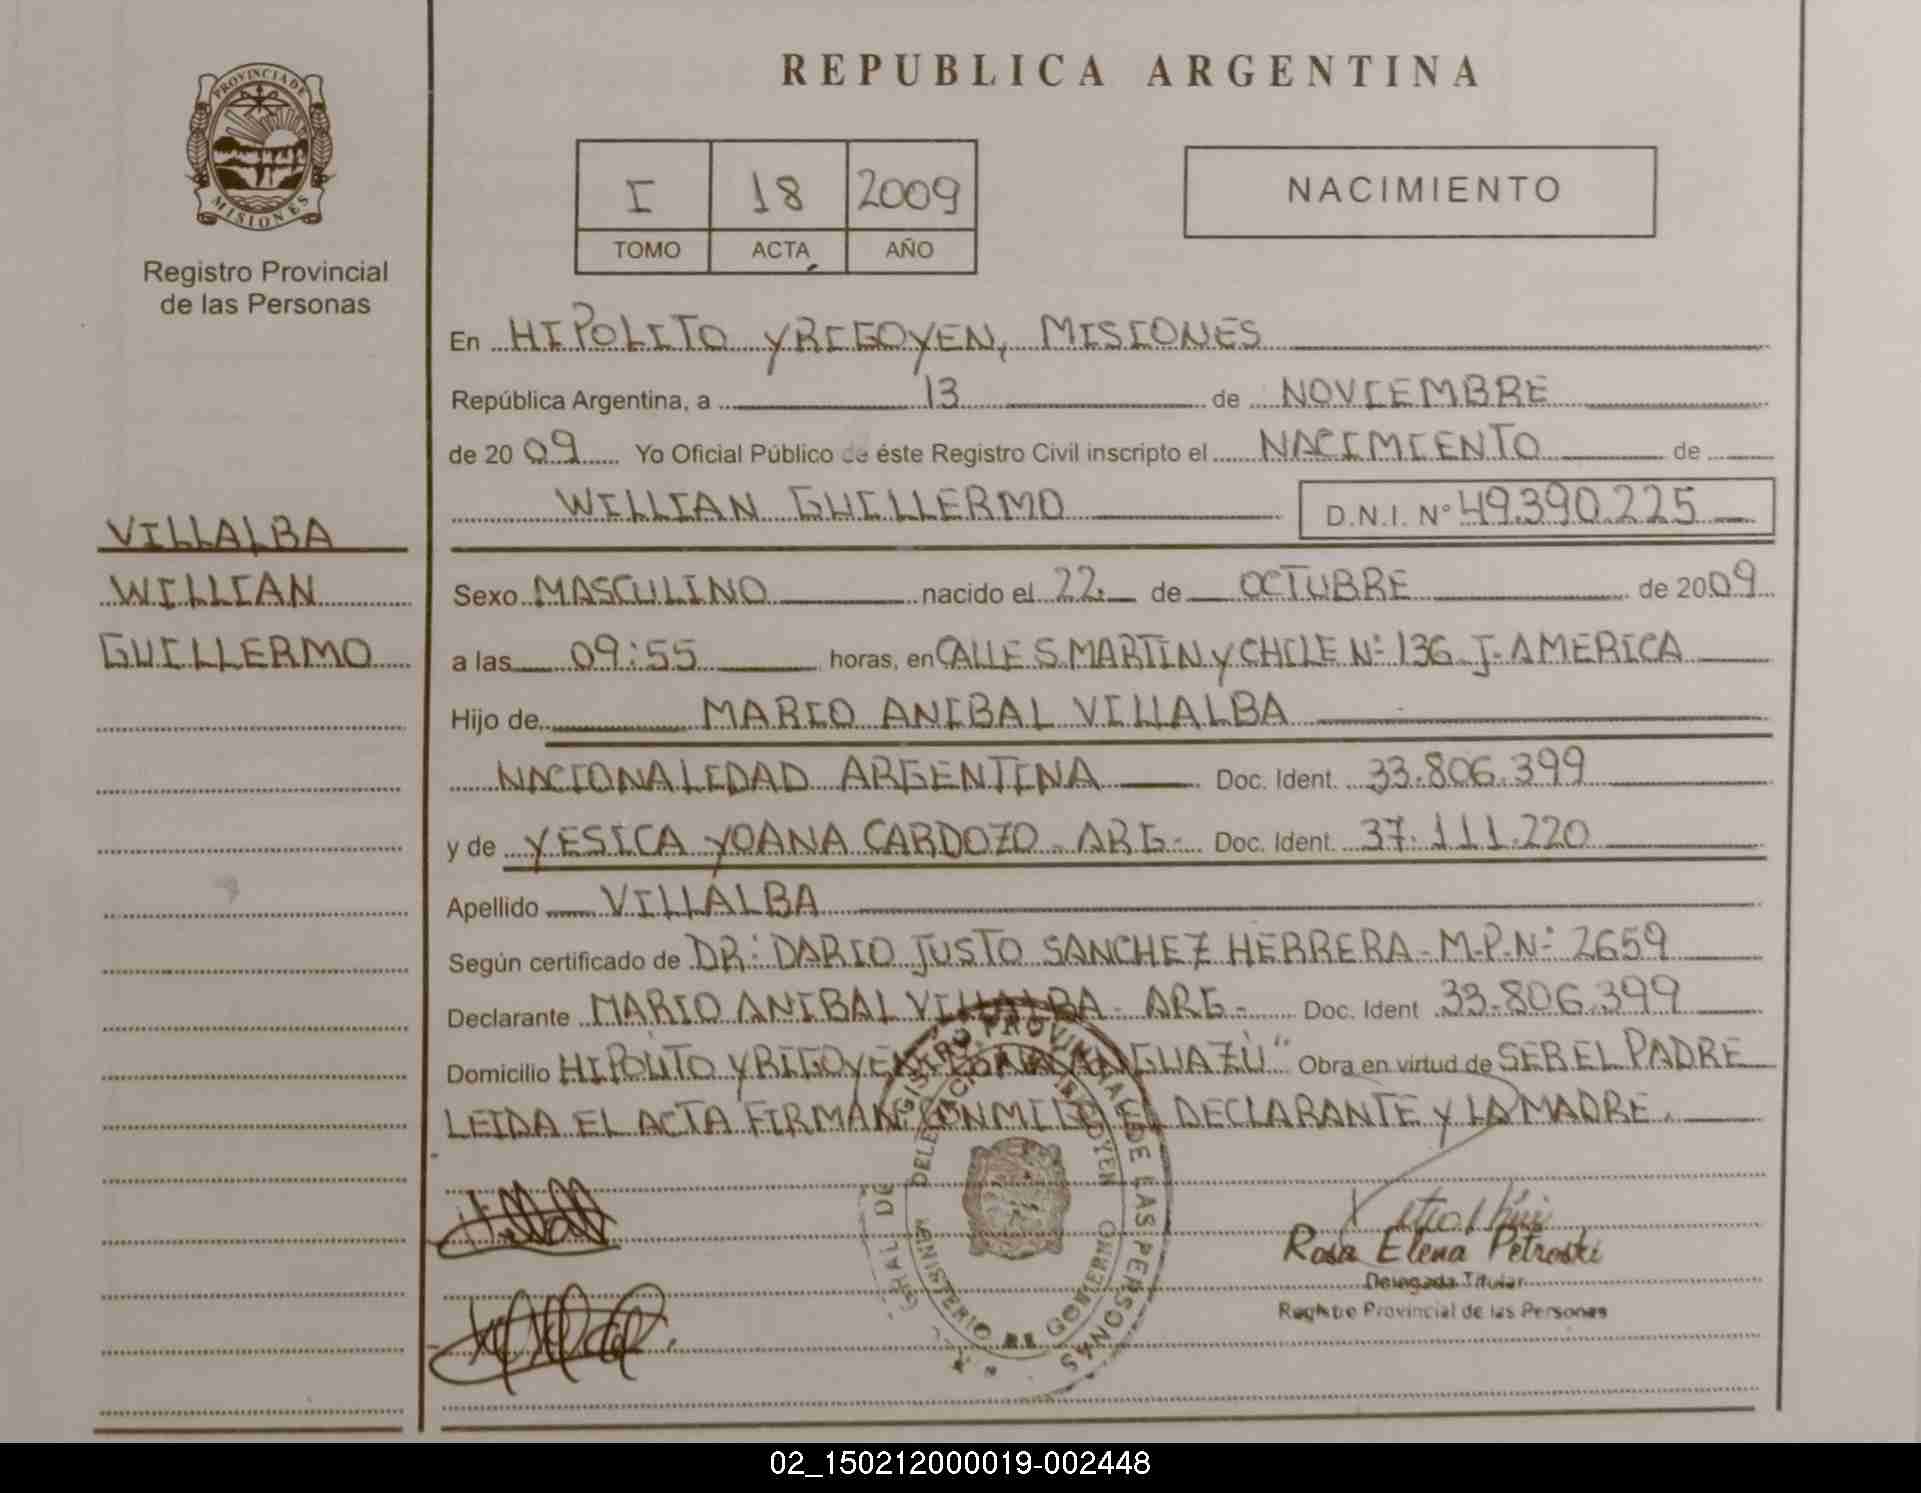 PROVINCIA DE
MISIONES
Registro Provincial
de las Personas
VILLALBA
WILLIAN
GUILLERMO
REPUBLICA ARGENTINA
I 18 2009
TOMO ACTA AÑO
NACIMIENTO
En HIPOLITO YRIGOYEN, MISIONES
República Argentina, a 13 de NOVIEMBRE
de 20 09 Yo Oficial Público de éste Registro Civil inscripto el NACIMIENTO de
WILLIAN GUILLERMO D.N.I. Nº 49.390.225
Sexo MASCULINO nacido el 22 de OCTUBRE de 20 09
a las 09:55 horas, en CALLE S. MARTIN y CHILE Nº 136 J. AMERICA
Hijo de MARIO ANIBAL VILLALBA
NACIONALIDAD ARGENTINA Doc. Ident. 33.806.399
y de YESICA YOANA CARDOZO - ARG - Doc. Ident. 37.111.220
Apellido VILLALBA
Según certificado de DR: DARIO JUSTO SANCHEZ HERRERA - M.P.Nº 2659
Declarante MARIO ANIBAL VILLALBA - ARG - Doc. Ident 33.806.399
Domicilio HIPOLITO YRIGOYEN GUAZÚ" Obra en virtud de SER EL PADRE
LEIDA EL ACTA FIRMAN CONMIGO EL DECLARANTE y LA MADRE.
REGISTRO PROVINCIAL DE LAS PERSONAS
MINISTERIO DE GOBIERNO
Rosa Elena Petroski
Delegada Titular
Registro Provincial de las Personas
02_150212000019-002448